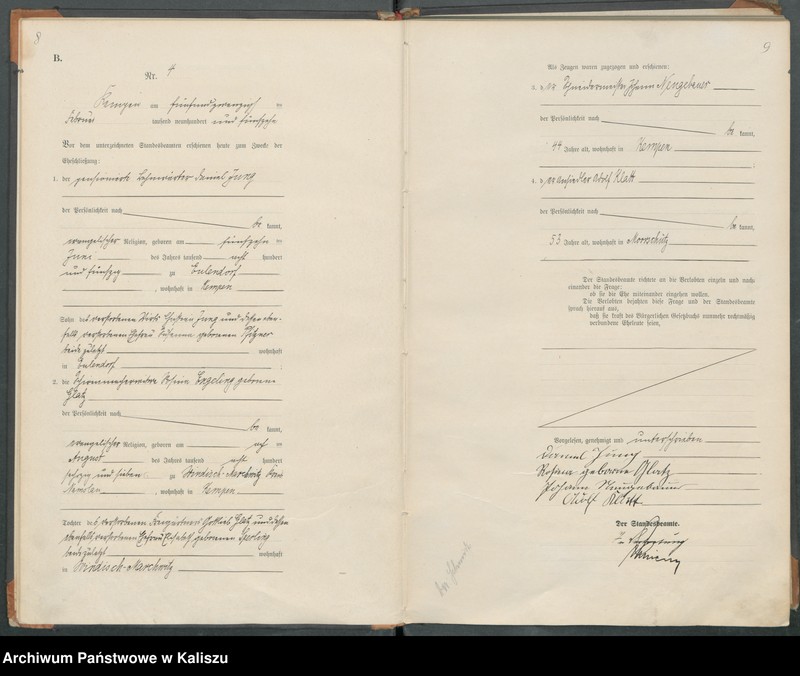 8
B.
Nr. 4
Kempen am fünfundzwanzigsten
Februar tausend neunhundert und fünfzehn
Vor dem unterzeichneten Standesbeamten erschienen heute zum Zwecke der
Eheschließung:
1. der pensionierte Bahnwärter Daniel Jung
der Persönlichkeit nach
be kannt,
evangelischer Religion, geboren am fünfzehn ten
Juni des Jahres tausend acht hundert
und fünfzig zu Eulendorf
, wohnhaft in Kempen
Sohn des verstorbenen Wirts Jung und dessen eben-
falls verstorbenen Ehefrau Susanna geborenen
beide zuletzt wohnhaft
in Eulendorf
2. die Rosina Engeling geborene
Glatz
der Persönlichkeit nach
be kannt,
evangelischer Religion, geboren am ten
August des Jahres tausend acht hundert
sechzig und sieben zu Windisch-Marchwitz Kreis
Namslau, wohnhaft in Kempen
Tochter des verstorbenen Freigärtners Gottlieb Glatz und dessen
ebenfalls verstorbenen Ehefrau Elisabeth geborenen Sperling
beide zuletzt wohnhaft
in Windisch-Marchwitz
9
Als Zeugen waren zugezogen und erschienen:
3. der Schneidermeister Johann Neugebauer
der Persönlichkeit nach
be kannt,
44 Jahre alt, wohnhaft in Kempen
4. der Ansiedler Adolf Klatt
der Persönlichkeit nach
be kannt,
53 Jahre alt, wohnhaft in Moorschütz
Der Standesbeamte richtete an die Verlobten einzeln und nach-
einander die Frage:
ob sie die Ehe miteinander eingehen wollen.
Die Verlobten bejahten diese Frage und der Standesbeamte
sprach hierauf aus,
daß sie kraft des Bürgerlichen Gesetzbuchs nunmehr rechtmäßig
verbundene Eheleute seien.
Vorgelesen, genehmigt und unterschrieben
Daniel Jung
Rosina geborene Glatz
Johann Neugebauer
Adolf Klatt
Der Standesbeamte.
In Vertretung
Archiwum Państwowe w Kaliszu